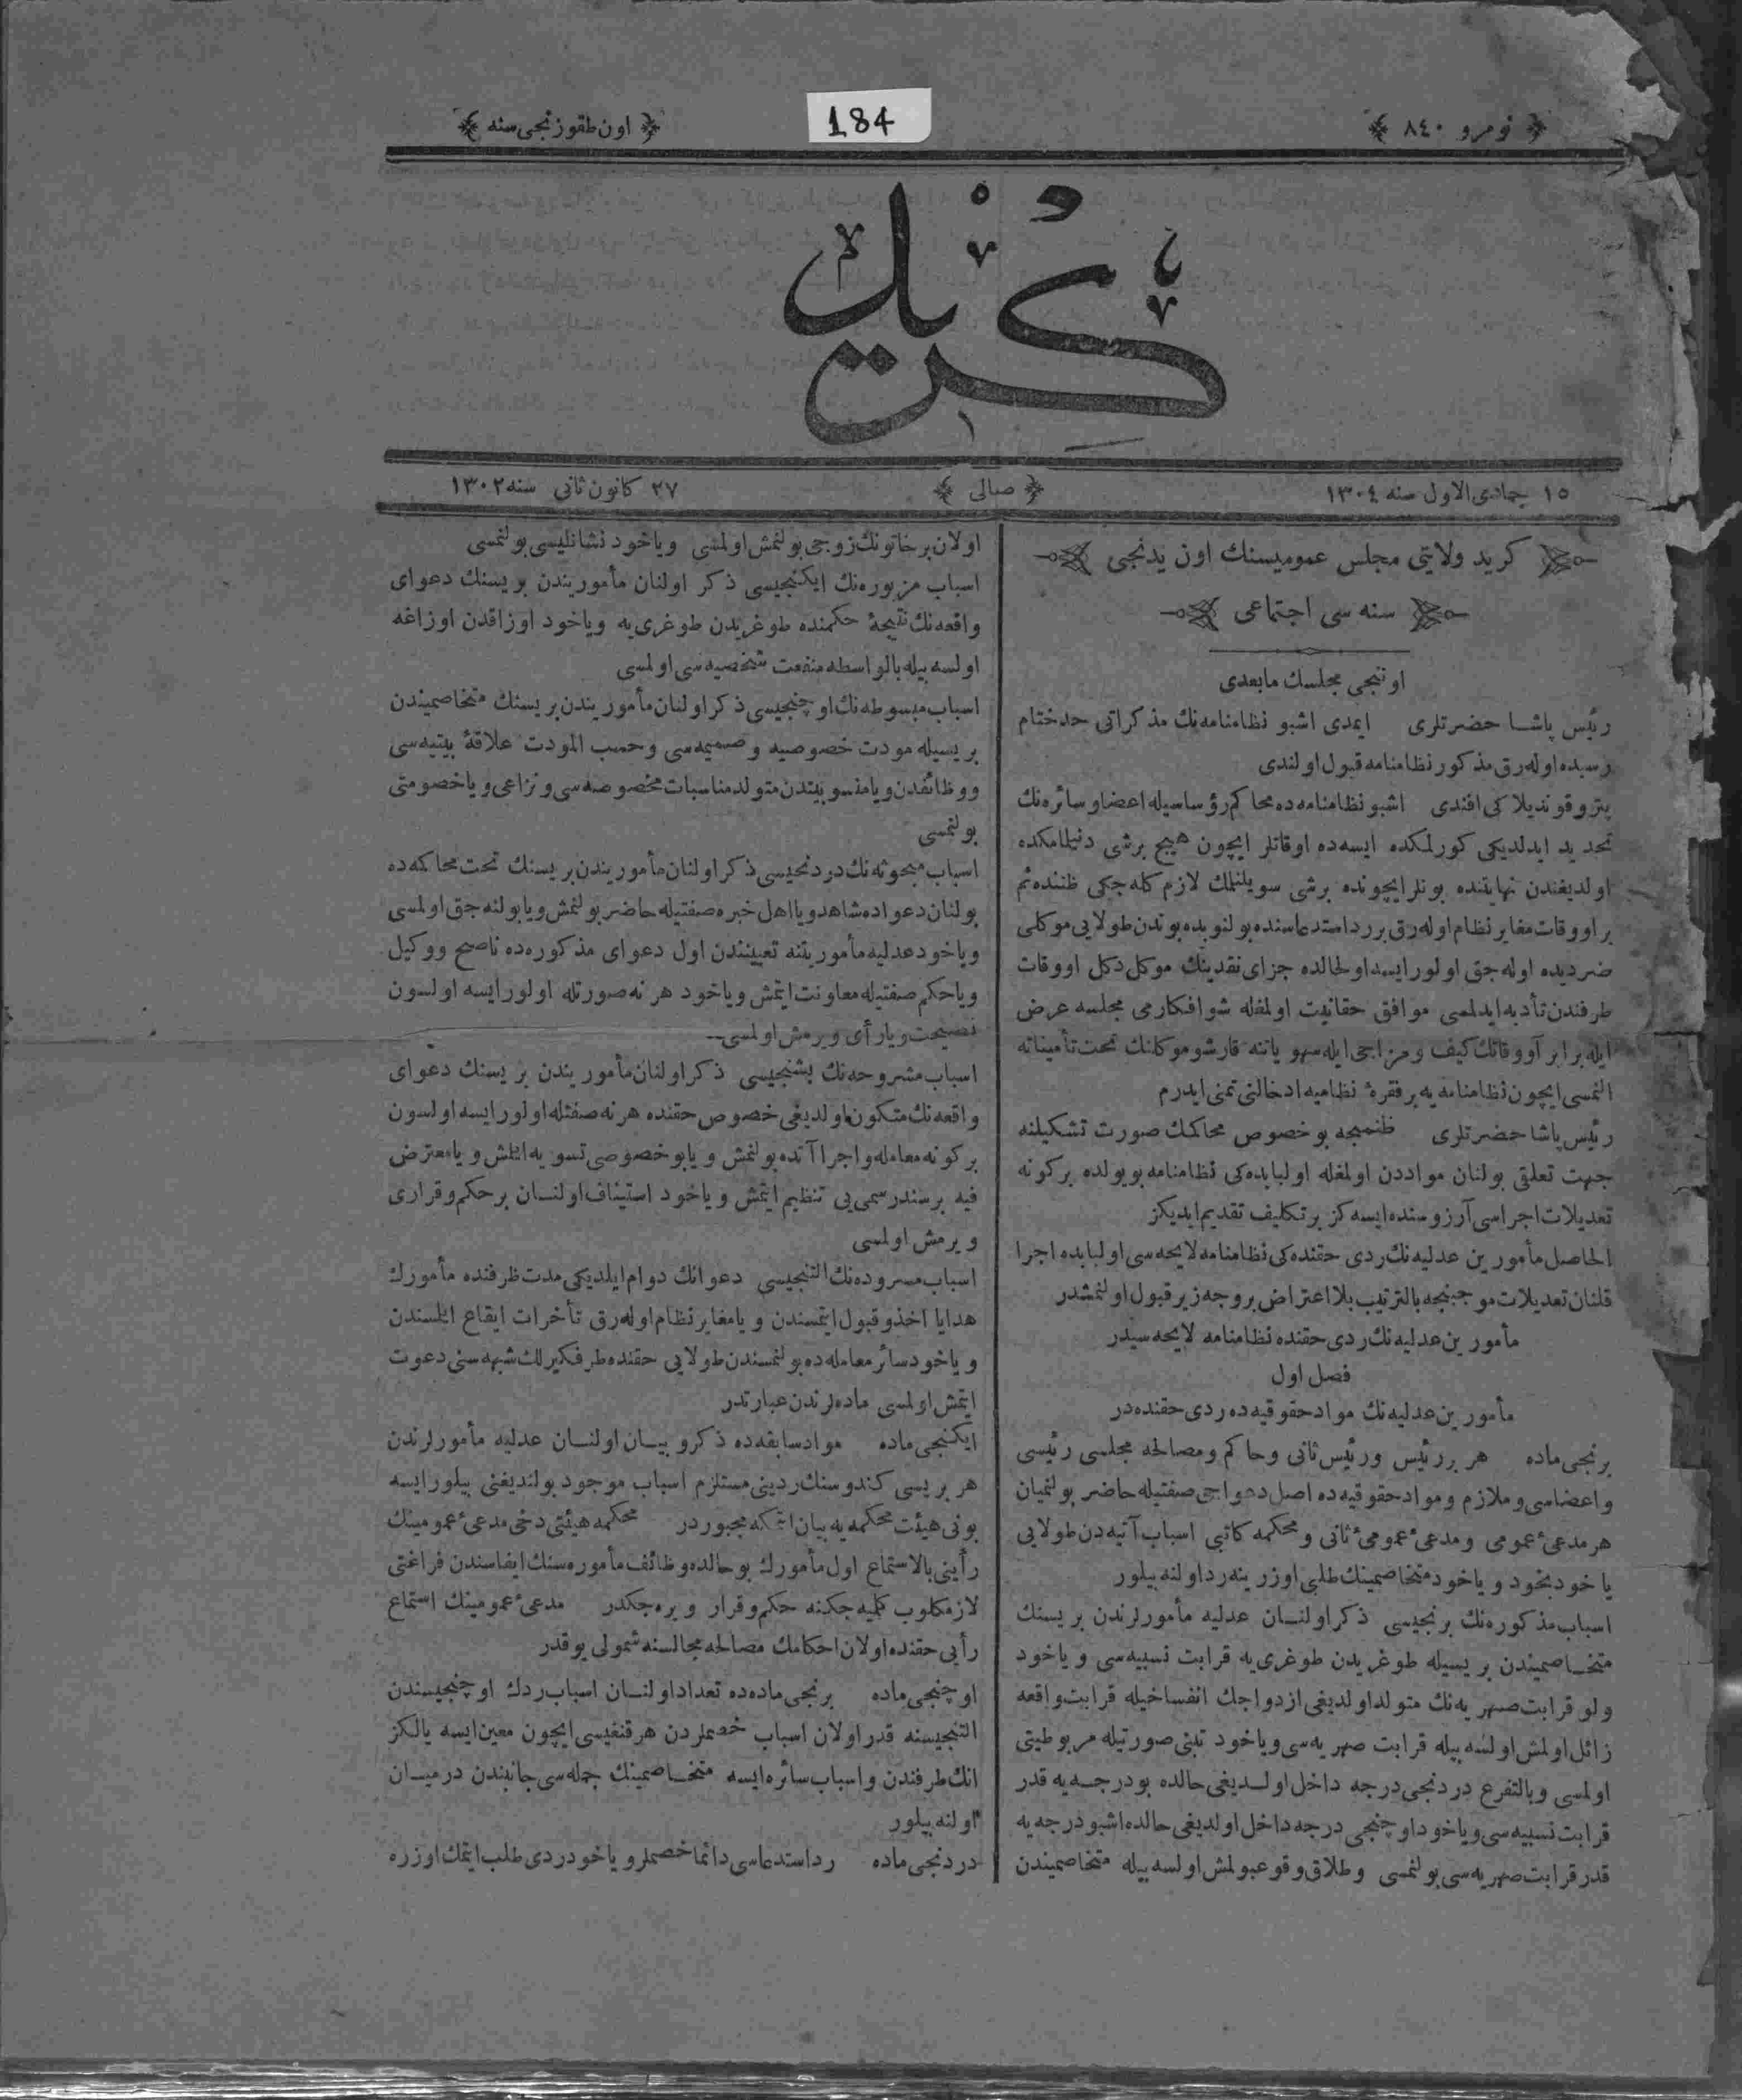 نومرو ٨٤٠
184
اون طقوزنجی سنه
کرید
١٥ جمادی الاول سنه ١٣٠٤
صالی
٢٧ کانون ثانی سنه ١٣٠٢
کرید ولایتی مجلس عمومیسنك اون یدنجی
سنه سی اجتماعی
اوننجی مجلسك مابعدی
رئیس پاشا حضرتلری ایمدی اشبو نظامنامه نك مذکراتی حدختام
رسیده اوله رق مذکور نظامنامه قبول اولندی
پترو قوندیلاکی افندی اشبو نظامنامه ده محاکم رؤساسیله اعضا وسائره نك
تحدید ایدلدیکی کورلمکده ایسه ده اوقاتلر ایچون هیچ برشی دنیلمامکده
اولدیغندن نهایتنده بونلر ایچونده برشی سویلنلمك لازم کله جکی ظننده ئم
بر اووقات مغایر نظام اوله رق بر رد استدعاسنده بولنوبده بوندن طولایی موکلی
ضردیده اوله جق اولور ایسه اولحالده جزای نقدینك موکل دکل اووقات
طرفندن تأدیه ایدلمسی موافق حقانیت اولمغله شو افکارمی مجلسه عرض
ایله برابر آووقاتك کیف ومزاجی ایله سهو یاتنه قارشو موکلنك تحت تأمیناته
النمسی ایچون نظامنامه یه بر فقرۀ نظامیه ادخالنی تمنی ایدرم
رئیس پاشا حضرتلری ظنمجه بو خصوص محاکمك صورت تشکیلنه
جهت تعلق بولنان مواددن اولمغله اولبابده کی نظامنامه بویولده برکونه
تعدیلات اجراسی آرزوسنده ایسه کز بر تکلیف تقدیم ایدیکز
الحاصل مأمورین عدلیه نك ردی حقنده کی نظامنامه لایحه سی اولبابده اجرا
قلنان تعدیلات موجبنجه بالترتیب بلا اعتراض بروجه زیر قبول اولنمشدر
مأمورین عدلیه نك ردی حقنده نظامنامه لایحه سیدر
فصل اول
مأمورین عدلیه نك مواد حقوقیه ده ردی حقنده در
برنجی ماده هر بر رئیس ورئیس ثانی وحاکم ومصالحه مجلسی رئیسی
واعضاسی وملازم ومواد حقوقیه ده اصل دعواجی صفتیله حاضر بولنمیان
هر مدعیٔ عمومی ومدعیٔ عمومیٔ ثانی ومحکمه کاتبی اسباب آتیه دن طولایی
یا خود بخود و یاخود متخاصمینك طلبی اوزرینه رد اولنه بیلور
اسباب مذکوره نك برنجیسی ذکر اولنان عدلیه مأمورلرندن بریسنك
متخاصمیندن بریسیله طوغریدن طوغری یه قرابت نسبیه سی و یاخود
ولو قرابت صهریه نك متولد اولدیغی ازدواجك انفساخیله قرابت واقعه
زائل اولمش اولسه بیله قرابت صهریه سی ویاخود تبنی صورتیله مربوطیتی
اولمسی وبالتفرع دردنجی درجه داخل اولدیغی حالده بودرجه یه قدر
قرابت نسبیه سی ویاخود اوچنجی درجه داخل اولدیغی حالده اشبو درجه یه
قدر قرابت صهریه سی بولنمسی وطلاق وقوعبولمش اولسه بیله متخاصمیندن
اولان بر خاتونك زوجی بولنمش اولمسی ویاخود نشانلیسی بولنمسی
اسباب مزبوره نك ایکنجیسی ذکر اولنان مأموریندن بریسنك دعوای
واقعه نك نتیجۀ حکمنده طوغریدن طوغری یه ویاخود اوزاقدن اوزاغه
اولسه بیله بالواسطه منفعت شخصیه سی اولمسی
اسباب مبسوطه نك اوچنجیسی ذکر اولنان مأموریندن بریسنك متخاصمیندن
بریسیله مودت خصوصیه وصمیمه سی وحسب المودت علاقۀ بیتیه سی
ووظائفدن ویا منسوبیتدن متولد مناسبات مخصوصه سی ونزاعی ویاخصومتی
بولنمسی
اسباب مبحوثه نك دردنجیسی ذکر اولنان مأموریندن بریسنك تحت محاکمه ده
بولنان دعواده شاهد ویا اهل خبره صفتیله حاضر بولنمش ویا بولنه جق اولمسی
ویاخود عدلیه مأموریتنه تعییننده‌ن اول دعوای مذکوره ده ناصح ووکیل
ویا حکم صفتیله معاونت ایتمش ویاخود هر نه صورتله اولور ایسه اولسون
نصیحت ویا رأی ویرمش اولمسی
اسباب مشروحه نك بشنجیسی ذکر اولنان مأموریندن بریسنك دعوای
واقعه نك متکون اولدیغی خصوص حقنده هر نه صفتله اولور ایسه اولسون
برکونه معامله و اجراآتده بولنمش ویا بو خصوصی تسویه ایتمش ویا معترض
فیه بر سند رسمی یی تنظیم ایتمش ویاخود استیناف اولنان بر حکم وقراری
ویرمش اولمسی
اسباب مسروده نك التنجیسی دعوانك دوام ایلدیکی مدت ظرفنده مأمورك
هدایا اخذ وقبول ایتمسندن ویا مغایر نظام اوله رق تأخرات ایقاع ایلمسندن
و یاخود سائر معامله ده بولنمسندن طولایی حقنده طرفکیرلك شبهه سنی دعوت
ایتمش اولمسی ماده لرندن عبارتدر
ایکنجی ماده مواد سابقه ده ذکر و بیان اولنان عدلیه مأمورلرندن
هر بریسی کندوسنك ردینی مستلزم اسباب موجود بولندیغنی بیلور ایسه
بونی هیئت محکمه یه بیان ایتمکه مجبوردر محکمه هیئتی دخی مدعیٔ عمومینك
رأینی بالاستماع اول مأمورك بو حالده وظائف مأموره سنك ایفاسندن فراغتی
لازمکلوب کلمیه جکنه حکم وقرار ویره جکدر مدعیٔ عمومینك استماع
رأیی حقنده اولان احکامك مصالحه مجالسنه شمولی یوقدر
اوچنجی ماده برنجی ماده ده تعداد اولنان اسباب ردك اوچنجیسندن
التنجیسنه قدر اولان اسباب خصملردن هر قنغیسی ایچون معین ایسه یالکز
انك طرفندن واسباب سائره ایسه متخاصمینك جمله سی جانبندن درمیان
اولنه بیلور
دردنجی ماده رد استدعاسی دائما خصملر ویاخود ردی طلب ایتمك اوزره